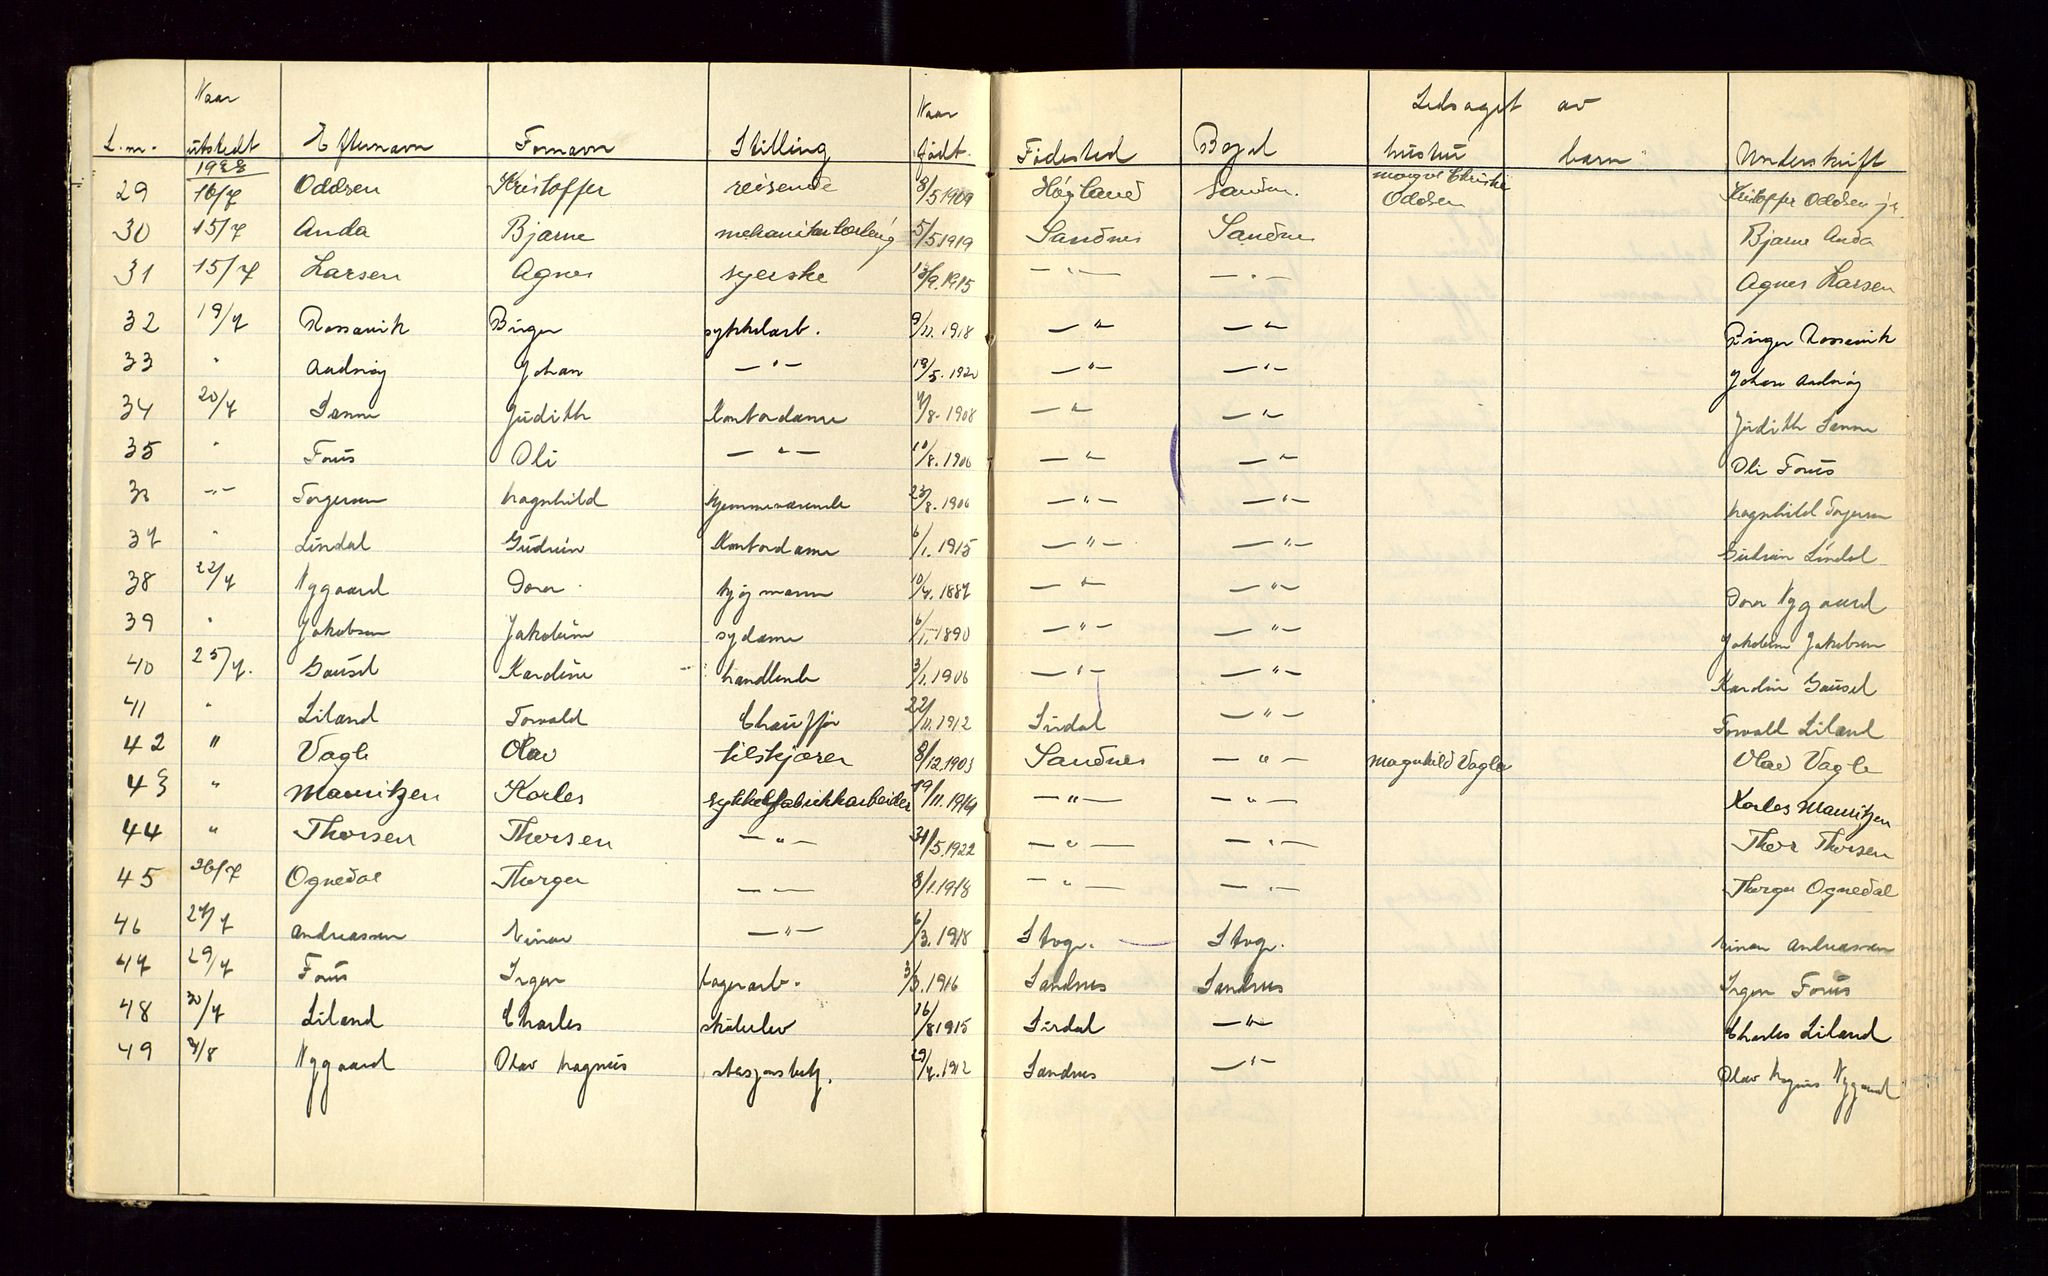 Naar Naar Ledsaget av
L.nr. utstedt Efternavn Fornavn Stilling født. Fødested Bopel hustru barn Underskrift
1938
29 16/7 Oddsen Kristoffer reisende 8/5 1909 Høyland Sandn. Oddsen Kristoffer Oddsen jr.
30 15/7 Anda Bjarne 5/5 1919 Sandnes Sandnes Bjarne Anda
31 15/7 Larsen Agnes syerske 13/9.1915 — " — — " — Agnes Larsen
32 19/7 Rossavik Birger sykkelarb. 9/11.1918 — " — — " — Birger Rossavik
33 " Johan — " — 19/5.1920 — " — — " — Johan
34 20/7 Sanne Judith kontordame 8.1908 — " — — " — Judith Sanne
35 " Forus Oli — " — 10/8.1906 — " — — " — Oli Forus
36 — " — Torgersen Magnhild hjemmeværende 23/8.1906 — " — — " — Magnhild Torgersen
37 " Lindal Gudrun kontordame 6/1.1915 — " — — " — Gudrun Lindal
38 22/7 Nygaard kjøpmann 10/4.1887 — " — — " — Nygaard
39 " Jakobsen Jakobine sydame 6/1.1890 — " — — " — Jakobine Jakobsen
40 25/7. Gausel Kardine handlende 3/1.1906 — " — — " — Kardine Gausel
41 " Liland Torvald Chauffør 22/11.1912 Sirdal — " — Torvald Liland
42 " Vagle Olav tilskjærer 8/12.1903 Sandnes — " — Magnhild Vagle Olav Vagle
43 " Mauritzen Karles sykkelfabrikkarbeider 19/11.1914 — " — — " — Karles Mauritzen
44 " Thorsen Thorsen — " — 31/5.1922 — " — — " — Thor Thorsen
45 26/7 Ognedal Thorger — " — 8/1.1918 — " — — " — Thorger Ognedal
46 27/7 Andreassen Einar — " — 6/3.1918 Stvgr. Stvgr. Einar Andreassen
47 29/7 Forus Inger lagerarb. 3/3.1916 Sandnes Sandnes Inger Forus
48 30/7 Liland Charles skoleelev 16/8 1915 Sirdal — " — Charles Liland
49 Nygaard Olav Magnus stasjonsbetj. 29/7.1912 Sandnes — " — Olav Magnus Nygaard